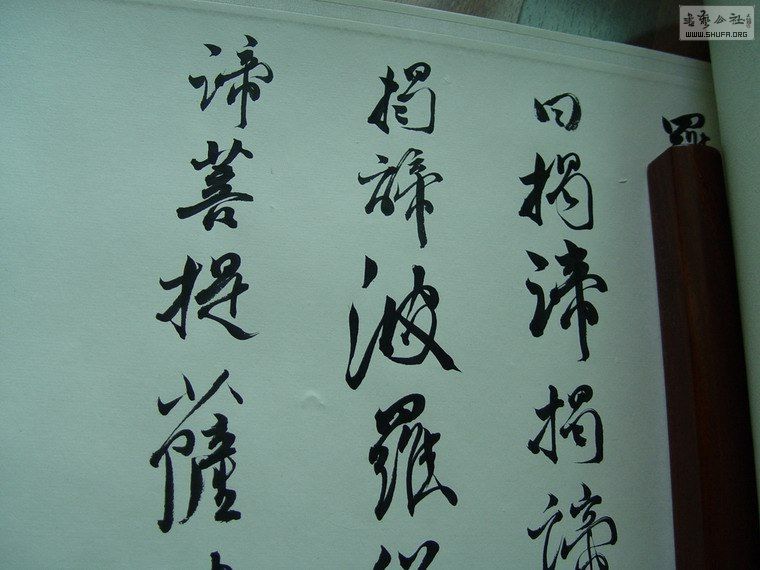 書藝公社
WWW.SHUFA.ORG
羅
曰揭諦揭諦
揭諦波羅僧
諦菩提薩